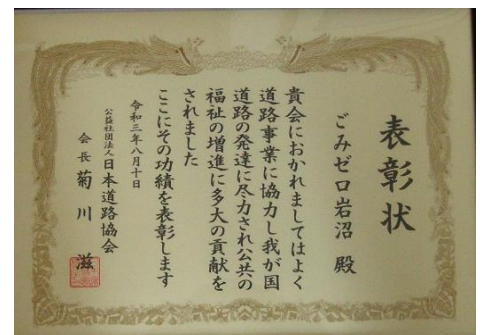 表彰状
ごみゼロ岩沼 殿
貴会におかれましてはよく
道路事業に協力し我が国
道路の発達に尽力され公共の
福祉の増進に多大の貢献を
されました
ここにその功績を表彰します
令和三年八月十日
公益社団法人日本道路協会
会長 菊川 滋